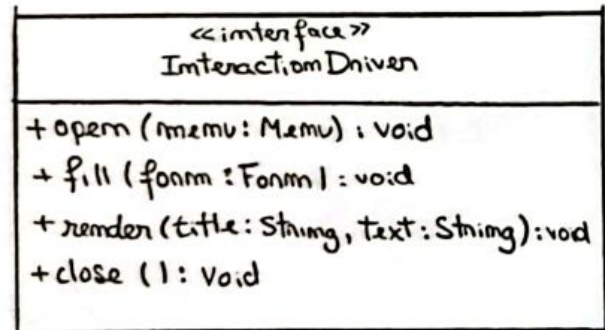 <<interface>>
InteractionDriver
+ open (menu: Menu) : void
+ fill (form : Form) : void
+ render (title: String, text: String): void
+ close () : void